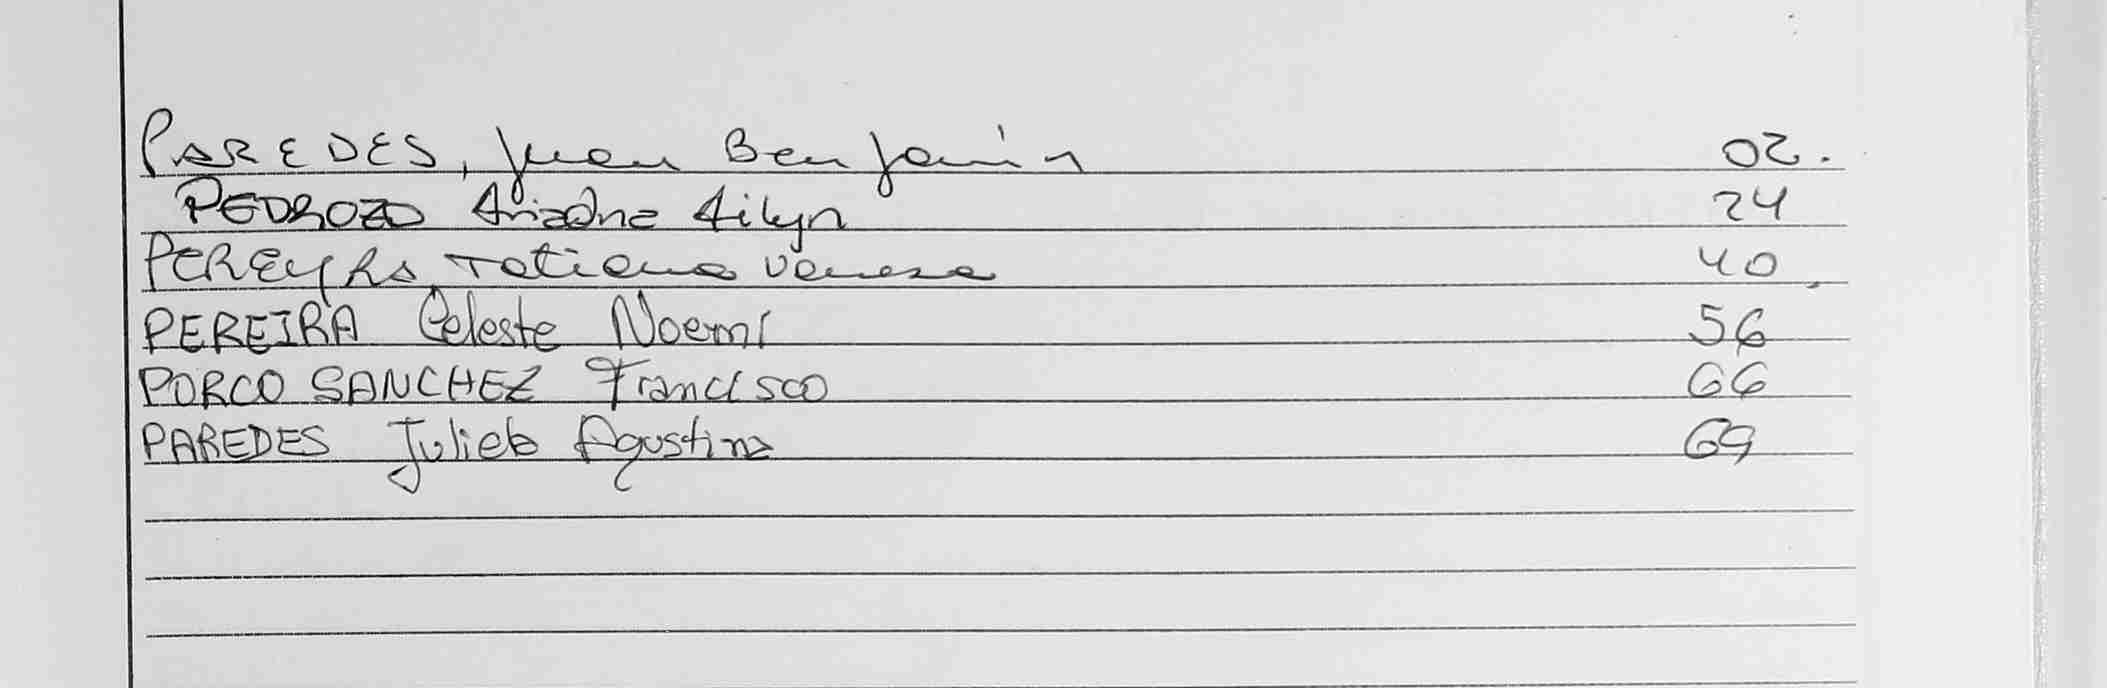 PAREDES, Juan Benjamín 02.
PEDROZO Ariadna Ailyn 24
PEREyRA, Tatiana Vanesa 40
PEREIRA Celeste Noemí 56
PORCO SANCHEZ Francisco 66
PAREDES Julieta Agustina 69